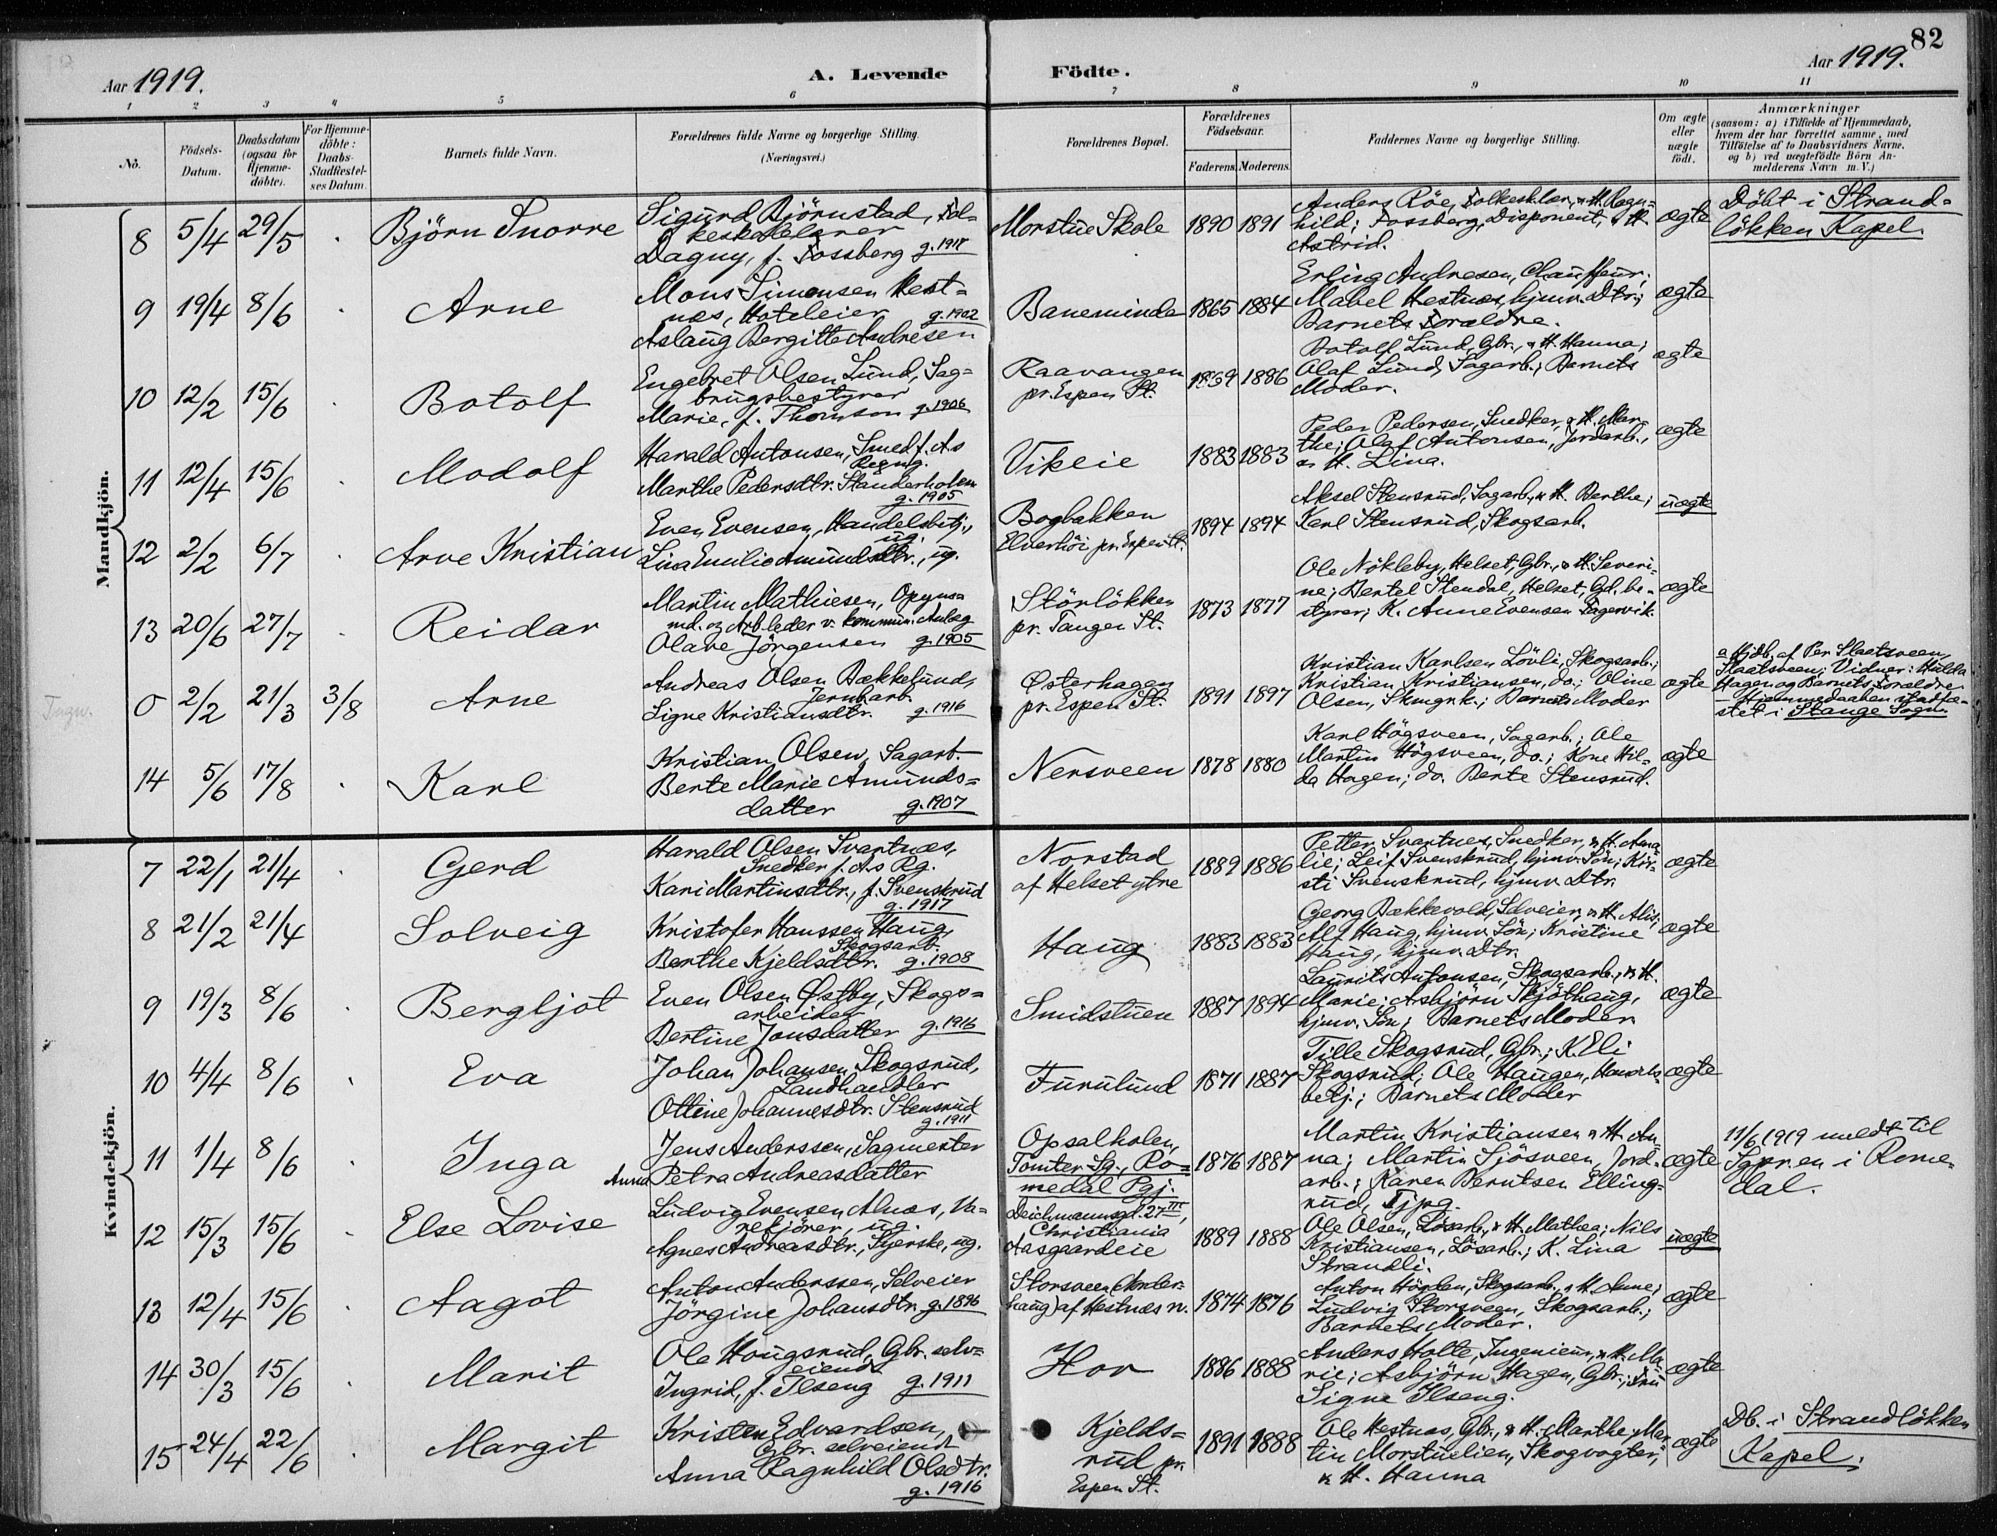 82
Aar 1919.
A. Levende Födte.
Aar 1919.
1 2 3 4 5 6 7 8 9 10 11
No.
Födsels-
Datum.
Daabsdatum
(ogsaa for
Hjemme-
döbte).
For Hjemme-
döbte:
Daabs-
Stadfæstel-
ses Datum.
Barnets fulde Navn.
Forældrenes fulde Navne og borgerlige Stilling.
(Næringsvei.)
Forældrenes Bopæl.
Forældrenes
Födselsaar.
Faderens. Moderens.
Faddernes Navne og borgerlige Stilling.
Om ægte
eller
uægte
födt.
Anmærkninger
(saasom: a) i Tilfælde af Hjemmedaab,
hvem der har forrettet samme, med
Tilföielse af to Daabsvidners Navne,
og b) ved uægtefödte Börn An-
melderens Navn m. V.)
Mandkjön.
8 5/4 29/5 Björn Snorre
Sigurd Björnstad, Fol-
keskolelærer
Dagny, f. Fossberg g. 1918
Morstue Skole 1890 1891
Anders Röe, Folkeskolelær., & H. Ragn-
hild; Fossberg, Disponent, & H.
Astrid.
ægte
Döbt i Strand-
løkken Kapel.
9 19/4 8/6 Arne
Mons Simensen Hest-
næs, Hoteleier g. 1902
Aslaug Bergitte Andresen
Baneminde 1865 1884
Erling Andresen, Chauffeur;
Mabel Hestnæs, hjmv. Dtr.;
Barnets Forældre.
ægte
10 12/2 15/6 Botolf
Engebret Olsen Lund, Sag-
brugsbestyrer
Marie, f. Thomson g. 1906
Raavangen
pr. Espen St.
1869 1886
Botolf Lund, Gbr., & H. Hanna;
Olaf Lund, Sagarb.; Barnets
Moder.
ægte
11 12/4 15/6 Modolf
Harald Antonsen, Smed f. As
Regng.
Marthe Pedersdtr. Standerholen
g. 1905
Vikeie 1883 1883
Peder Pedersen, Snedker, & H. Mar-
the; Olaf Antonsen, Jordarb.,
& H. Lina.
ægte
12 2/2 6/7 Arve Kristian
Even Evensen, Handelsbetj.,
ug.
Lina Emilie Amundsdtr., ug.
Bogbakken
Elverhöi pr. Espen St.
1894 1894
Aksel Stensrud, Sagarb., & H. Berthe;
Karl Stensrud, Skogsarb.
uægte
13 20/6 27/7 Reidar
Martin Mathiesen, Opsyns-
md. og Arb.leder v. kommun. Anlæg
Olave Jörgensen g. 1905
Störlökken
pr. Tangen St.
1873 1877
Ole Nökleby, Helset, Gbr., & H. Severi-
ne; Bertel Stendal, Helset, Gd. be-
styrer; K. Anne Evensen Fagervik.
ægte
Ingv.
0 2/2 21/3 3/8 Arne
Andreas Olsen Bækkelund,
Jernbarb.
Signe Kristiansdtr. g. 1916
Østerhagen
pr. Espen St.
1891 1897
Kristian Karlsen Lövli, Skogsarb.;
Kristian Kristiansen, do.; Oline
Olsen, Skmgrk.; Barnets Moder
ægte
a. Hjdb. af Per Slaatsveen,
Slaatsveen; Vidner: Hulda
Hagen og Barnets Forældre
Hjemmedaaben stadfæ-
stet i Stange Sogn.
14 5/6 17/8 Karl
Kristian Olsen, Sagarb.
Berte Marie Amunds-
datter g. 1907
Nersveen 1878 1880
Karl Högsveen, Sagarb.; Ole
Martin Högsveen, do.; Kone Hil-
da Hagen; do. Berte Stensrud.
ægte
Kvindekjön.
7 22/1 21/4 Gerd
Harald Olsen Svartnæs,
Snedker f. As Rg.
Kari Martinsdtr., f. Svenskrud
g. 1917
Norstad
af Helset ytre
1889 1886
Petter Svartnes, Snedker, & H. Ama-
lie; Leif Svenskrud, hjmv. Sön; Kir-
sti Svenskrud, hjmv. Dtr.
ægte
8 21/2 21/4 Solveig
Kristofer Hanssen Haug,
Skogsarb.
Berthe Kjeldsdtr. g. 1908
Haug 1883 1883
Georg Bækkevold, Selveier, & H. Alis;
Alf Haug, hjmv. Sön; Kristine
Haug, hjmv. Dtr.
ægte
9 19/3 8/6 Bergljot
Even Olsen Østby, Skogs-
arbeider
Bertine Jonsdatter g. 1916
Smidstuen 1887 1894
Laurits Antonsen, Skogsarb., & H.
Marie; Asbjörn Skjöthaug,
hjmv. Sön; Barnets Moder
ægte
10 4/4 8/6 Eva
Johan Johansen Skogsrud,
Landhandler
Ottine Johannesdtr. Stensrud
g. 1911
Furulund 1871 1887
Tille Skogsrud, Gbr.; K. Eli
Skogsrud; Ole Haugen, Handels-
betj.; Barnets Moder
ægte
11 1/4 8/6 Inga
Jens Anderssen, Sagmester
Anna Petra Andreasdatter
Opsalholen,
Tomter Sg., Ro-
medal Pgj.
1876 1887
Martin Kristiansen & H. An-
na; Martin Sjösveen, Jord-
arb.; Karen Berntsen Elling-
rud, Tjpg.
ægte
11/6 1919 meldt til
Sgpr.en i Rome-
dal.
12 15/3 15/6 Else Lovise
Ludvig Evensen Alnæs, Va-
rekjörer, ug.
Agnes Andreasdtr., Syerske, ug.
Deichmannsgd. 27 III,
Christiania
Aasgaardeie
1889 1888
Ole Olsen, Lösarb., & H. Mathea; Nils
Kristiansen, Lösarb.; K. Lina
Strandli.
uægte
13 12/4 15/6 Aagot
Anton Anderssen, Selveier
Jörgine Johansdtr. g. 1896
Storsveen (Nordre-
haug) af Hestnæs n.
1874 1876
Anton Högden, Skogsarb., & H. Anne;
Ludvig Storsveen, Skogsarb.;
Barnets Moder.
ægte
14 30/3 15/6 Marit
Ole Hougsrud, Gbr. selv-
eiende
Ingrid, f. Ilseng g. 1911
Hov 1886 1888
Anders Holte, Ingeniør, & H. Ma-
rie; Asbjörn Hagen, Gbr.; Fru
Signe Ilseng.
ægte
15 24/4 22/6 Margit
Kristen Edvardsen,
Gbr. selveiend
Anna Ragnhild Olsdtr.
g. 1916
Kjelds-
rud pr.
Espen St.
1891 1888
Ole Hestnæs, Gbr., & H. Marthe; Mar-
tin Morstuelien, Skogvogter,
& H. Hanna
ægte
Db. i Strandlökken
Kapel.